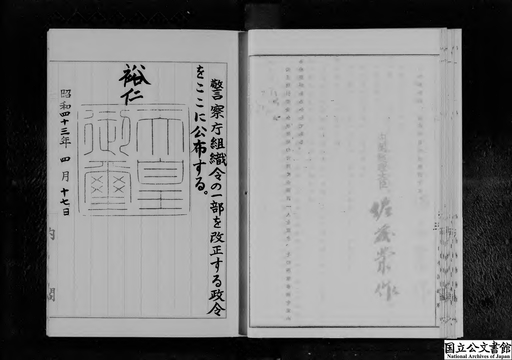 警察庁組織令の一部を改正する政令
をここに公布する。
裕仁
天皇
御璽
昭和四十三年四月十七日
内閣
佐藤榮作
国立公文書館
National Archives of Japan